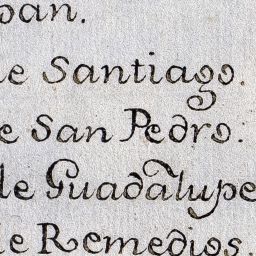 pan.
de Santiago.
de San Pedro.
de Guadalupe
de Remedios.